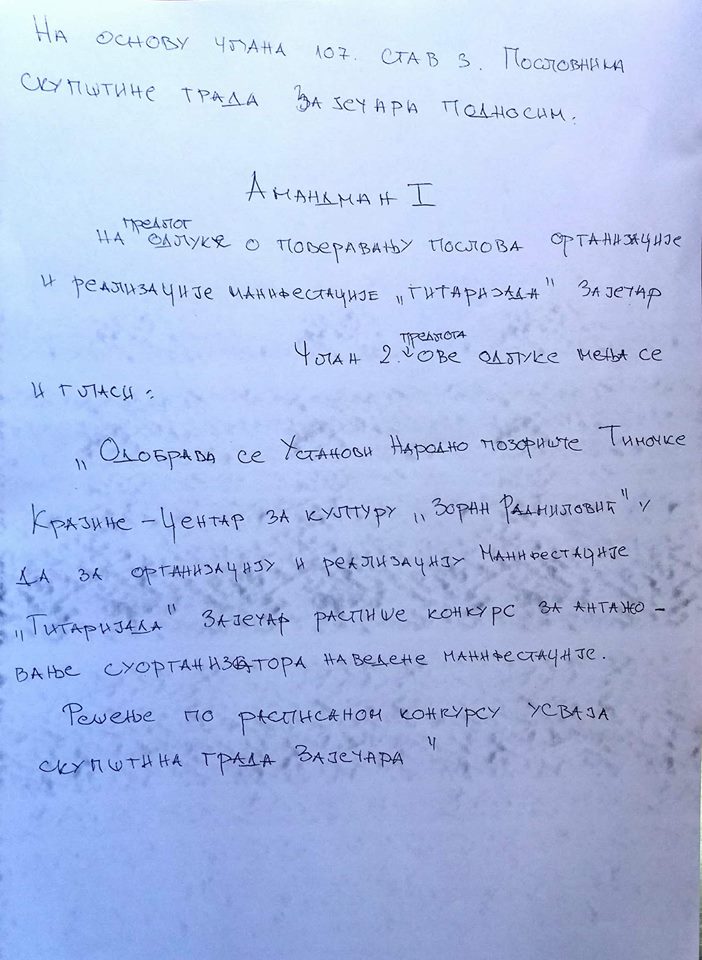 На основу члана 107. став 3. Пословника
скупштине града Зајечара подносим:
Амандман I
предлог
на одлуке о поверавању послова организације
и реализације манифестације „Гитаријада" Зајечар
предлога
Члан 2. ове одлуке мења се
и гласи:
„Одобрава се Установи Народно позориште Тимочке
Крајине - Центар за културу „Зоран Радмиловић"
да за организацију и реализацију Манифестације
„Гитаријада" Зајечар распише конкурс за ангажо-
вање суорганизатора наведене манифестације.
Решење по расписаном конкурсу усваја
скупштина града Зајечара"